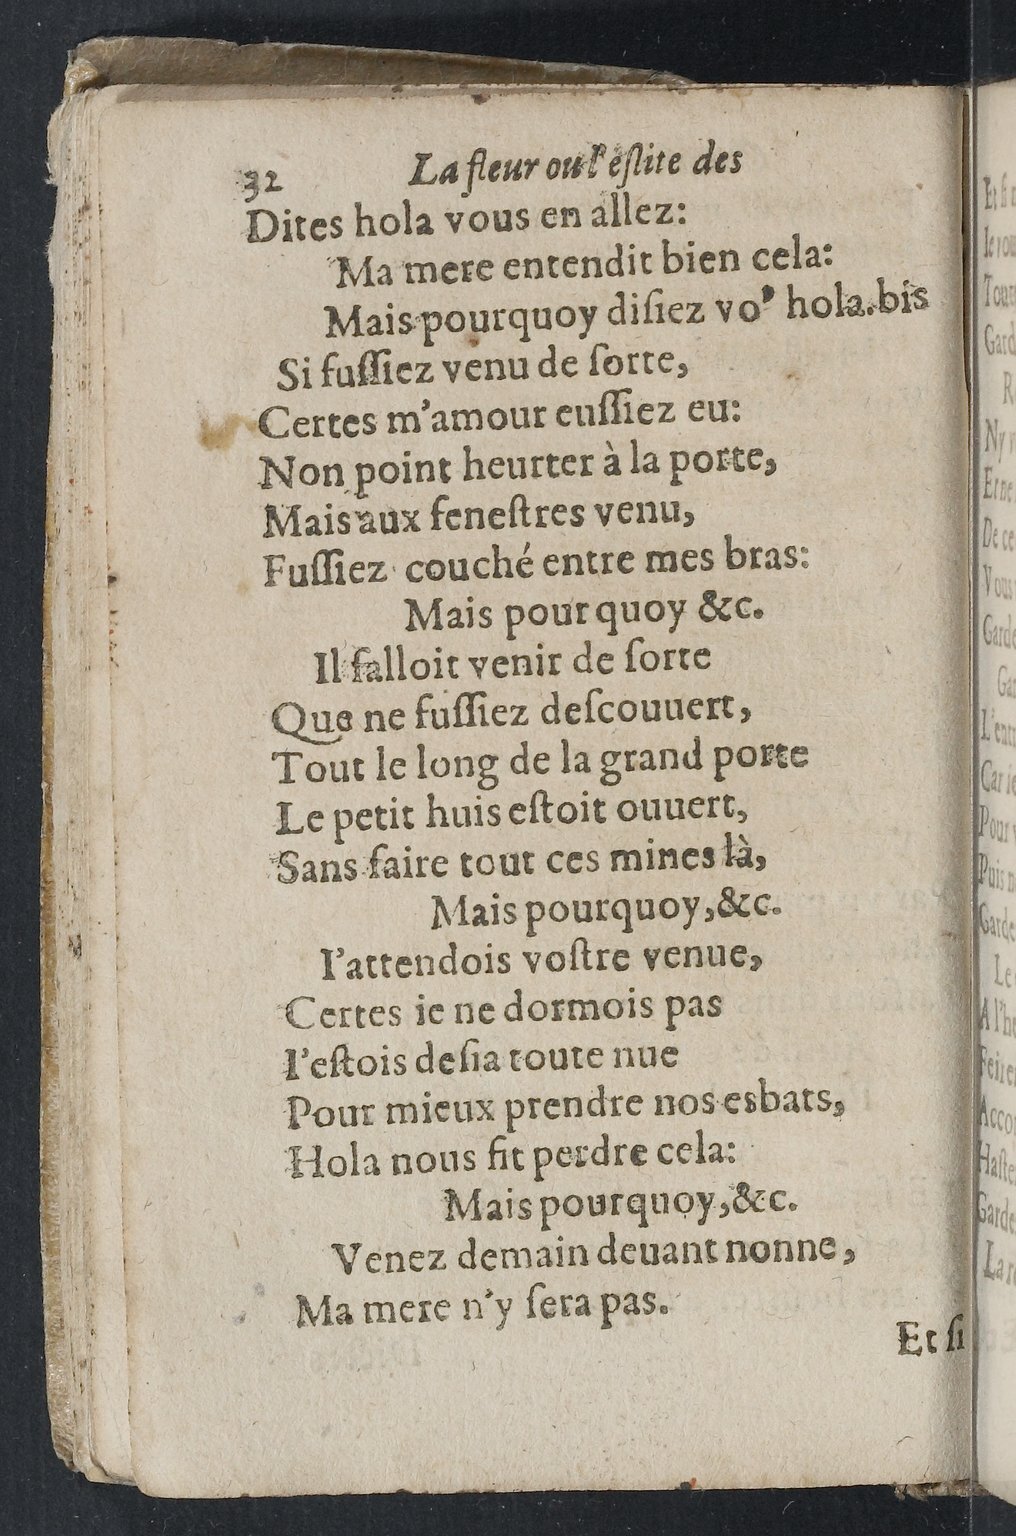 32 La fleur ou l'eſlite des
Dites hola vous en allez:
Ma mere entendit bien cela:
Mais pourquoy diſiez vo⁹ hola.bis
Si fuſſiez venu de ſorte,
Certes m'amour euſſiez eu:
Non point heurter à la porte,
Mais aux feneſtres venu,
Fuſſiez couché entre mes bras:
Mais pour quoy &c.
Il falloit venir de ſorte
Que ne fuſſiez deſcouuert,
Tout le long de la grand porte
Le petit huis eſtoit ouuert,
Sans faire tout ces mines là,
Mais pourquoy,&c.
I'attendois voſtre venue,
Certes ie ne dormois pas
I'eſtois deſia toute nue
Pour mieux prendre nos esbats,
Hola nous fit perdre cela:
Mais pourquoy,&c.
Venez demain deuant nonne,
Ma mere n'y ſera pas.
Et ſi